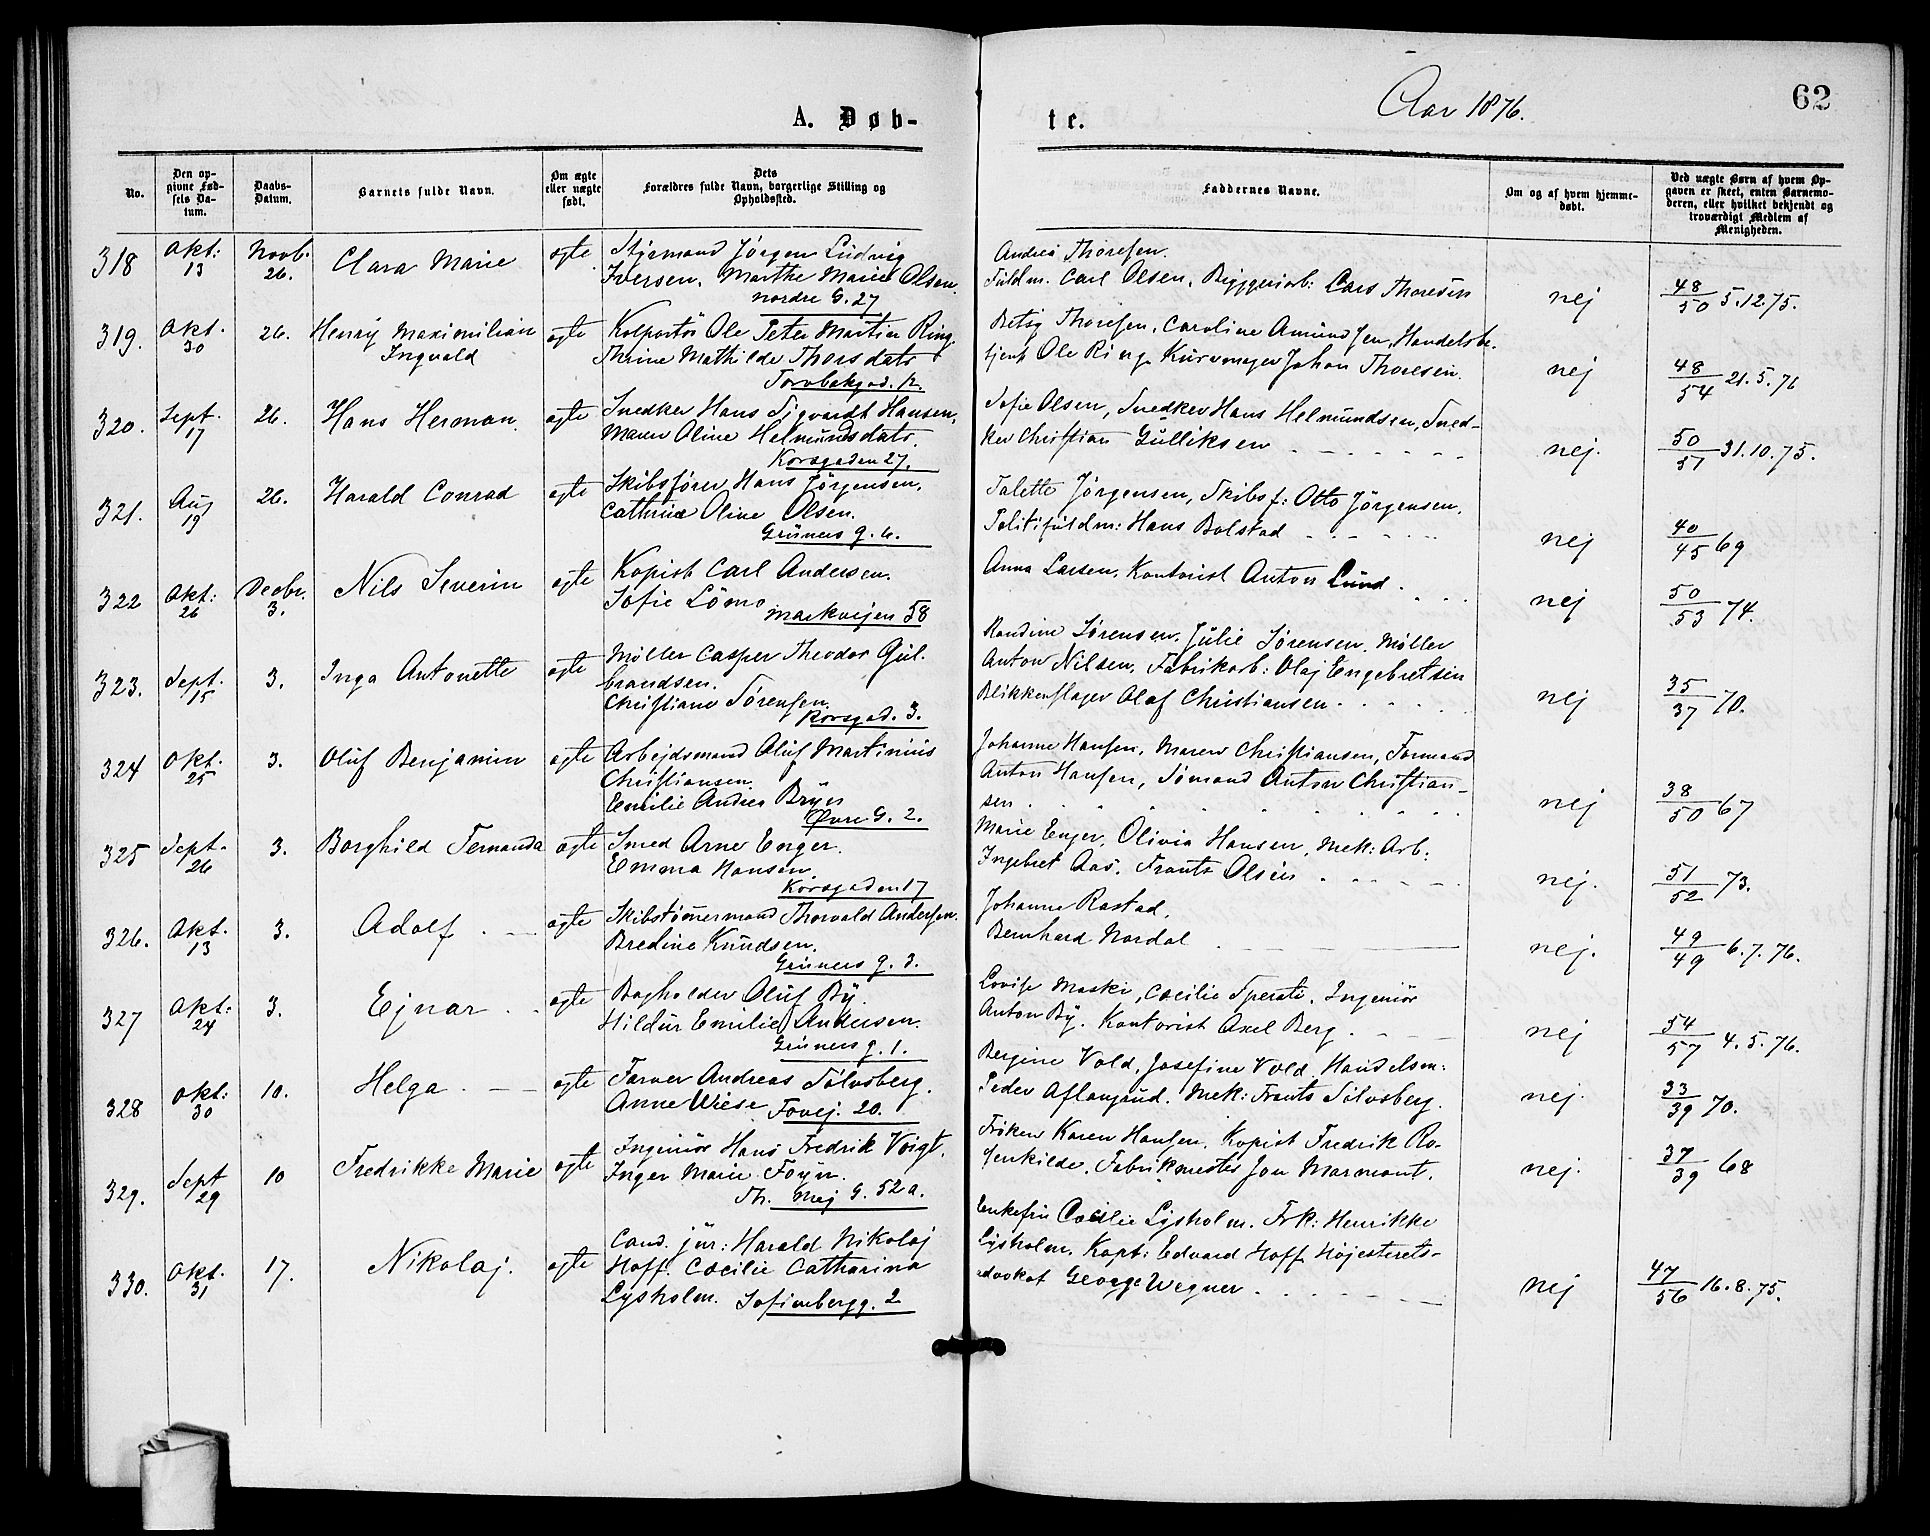 Aar 1876.
62
A. Døb-
te.
No.
Den op-
givne Fød-
sels Da-
tum.
Daabs-
Datum.
Barnets fulde Navn.
Om ægte
eller uægte
født.
Dets
Forældres fulde Navn, borgerlige Stilling og
Opholdssted.
Faddernes Navne.
Om og af hvem hjemme-
døbt.
Ved uægte Børn af hvem Op-
gaven er skeet, enten Barnemo-
deren, eller hvilket bekjendt og
troværdigt Medlem af
Menigheden.
318 Okt: 13 Novb. 26. Clara Marie ægte
Styrmand Jörgen Ludvig
Iversen. Marthe Marie Olsen.
Nordre G. 27
Andrea Thoresen.
Fuldm. Carl Olsen, Bryggeriarb: Lars Thoresen
nej 48/50 5.12.75.
319. Okt. 30 26. Henry Maximilian
Ingvald ægte
Kolportör Ole Peter Martin Ring.
Thrine Mathilde Thorsdatr
Torvbakgad. 12.
Betsy Thoresen, Caroline Amundsen, Handelsbe-
tjent Ole Ring Kurvmager Johan Thoresen.
nej 48/54 21.5.71
320. Sept. 17 26. Hans Herman. ægte
Snedker Hans Sigvardt Hansen,
Maren Oline Helmundsdatr.
Korsgaden 27.
Sofie Olsen, Snedker Hans Helmundsen, Sned-
ker Christian Gulliksen
nej. 50/51 31.10.75.
321. Aug 19 26. Harald Conrad ægte
Skibsfører Hans Jörgensen,
Cathrine Oline Olsen.
Grüners g. 6.
Talette Jörgensen, Skibsf: Otto Jörgensen,
Politifuldm: Hans Bolstad
nej 40/45 69
322 Okt: 26 Decbr. 3. Nils Severin ægte
Kopist Carl Andersen.
Sofie Lömo
Markvejen 58
Anna Larsen, Kontorist Anton Lund.
nej 50/53 74.
323. Sept. 15 3. Inga Antonette ægte
Møller Casper Theodor Gul-
brandsen.
Christiane Sörensen.
Korsgad. 3.
Randine Sørensen. Julie Sørensen. Møller
Anton Nilsen, Fabrikarb: Olaj Engebretsen
Blikkenslager Olaf Christiansen
nej 35/37 70.
324 Okt. 25 3. Oluf Benjamin ægte
Arbejdsmand Oluf Martinius
Christiansen.
Emilie Andrea Bryn
Øvre G. 2.
Johanne Hansen, Maren Christiansen, Formand
Anton Hansen, Sömand Anton Christian-
sen
nej 38/50 67
325 Sept. 26 3. Borghild Fernanda ægte
Smed Arne Enger.
Emma Hansen.
Korsgaden 17
Marie Enger, Olivia Hansen, Mek: Arb:
Ingebret Aas. Frants Olsen
nej. 51/52 73.
326. Okt. 13 3. Adolf ægte
Skibstömmermand Thorvald Andersen.
Bredine Knudsen.
Grüners g. 3.
Johanne Rastad.
Bernhard Nordal
nej. 49/49 6.7.76.
327 Okt: 24 3. Ejnar ægte
Bogholder Oluf By.
Hildur Emilie Andersen.
Grüners g. 1.
Lovise Maski, Cecilie Sperati. Ingeniör
Anton By. Kontorist Axel Berg.
nej 54/57 4.5.76.
328 Okt: 30 10. Helga ægte
Farver Andreas Sölvsberg.
Anne Wiese
Fovej. 20.
Bergine Vold, Josefine Vold. Handelsm:
Peder Aflangrud. Mek: Frants Sölvsberg.
nej. 33/39 70.
329. Sept 29 10 Fredrikke Marie ægte
Ingeniör Hans Fredrik Voigt,
Inger Marie Foyn.
Th. Mej G. 52a.
Frøken Karen Hansen. Kopist Fredrik Ro-
senkilde. Fabrikmester Jon Marmont.
nej. 37/39 68
330. Okt. 31 17. Nikolaj. ægte
Cand. jur: Harald Nikolaj
Hoff. Cæcilie Catharina
Lysholm. Sofienbergg. 2
Enkefru Cæcilie Lysholm. Frk: Henrikke
Lysholm. Kapt: Edvard Hoff Højesterets-
advokat George Wegner
nej 47/56 16.8.75.